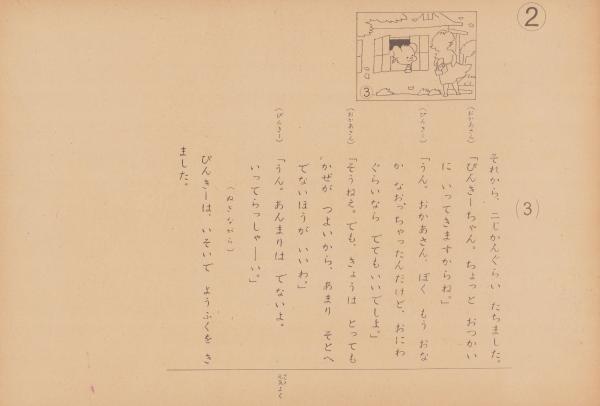 2
3
(3)
それから、二じかんぐらい たちました。
(おかあさん)
「ぴんきーちゃん。ちょっと おつかい
に いってきますからね。」
(ぴんきー)
「うん。おかあさん、ぼく もう おな
か なおっちゃったんだけど、おにわ
ぐらいなら でてもいいでしょ。」
(おかあさん)
「そうねえ。でも、きょうは とっても
かぜが つよいから、あまり そとへ
でないほうが いいわ。」
(ぴんきー)
「うん。あんまりは でないよ。
いってらっしゃーい。」
(ぬきながら)
ぴんきーは、いそいで ようふくを き
ました。
元気よく